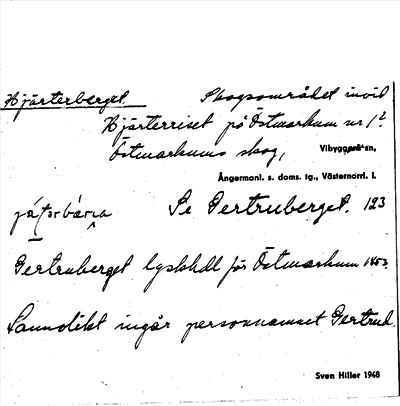 Hjärterberget. Skogsområdet invid
Hjärterriset på Östmarkum nr 1².
Östmarkums skog, Vibyggerå sn,
Ångermanl. s. doms. tg., Västernorrl. l.
Se Gertruberget. 123
Gertruberget lgskhdl för Östmarkum 1853.
Sannolikt ingår personnamnet Gertrud.
Sven Hiller 1948